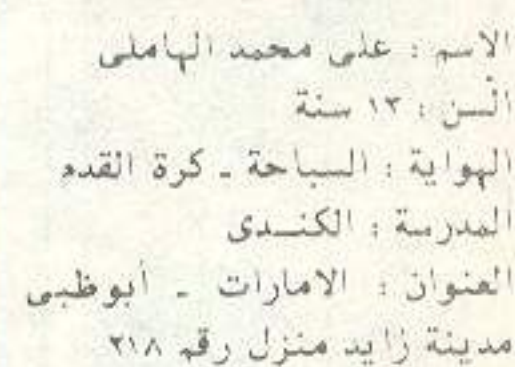 الاسم : على محمد الهاملى
السن : ١٣ سنة
الهواية : السباحة - كرة القدم
المدرسة : الكندى
العنوان : الامارات - أبوظبى
مدينة زايد منزل رقم ٢١٨